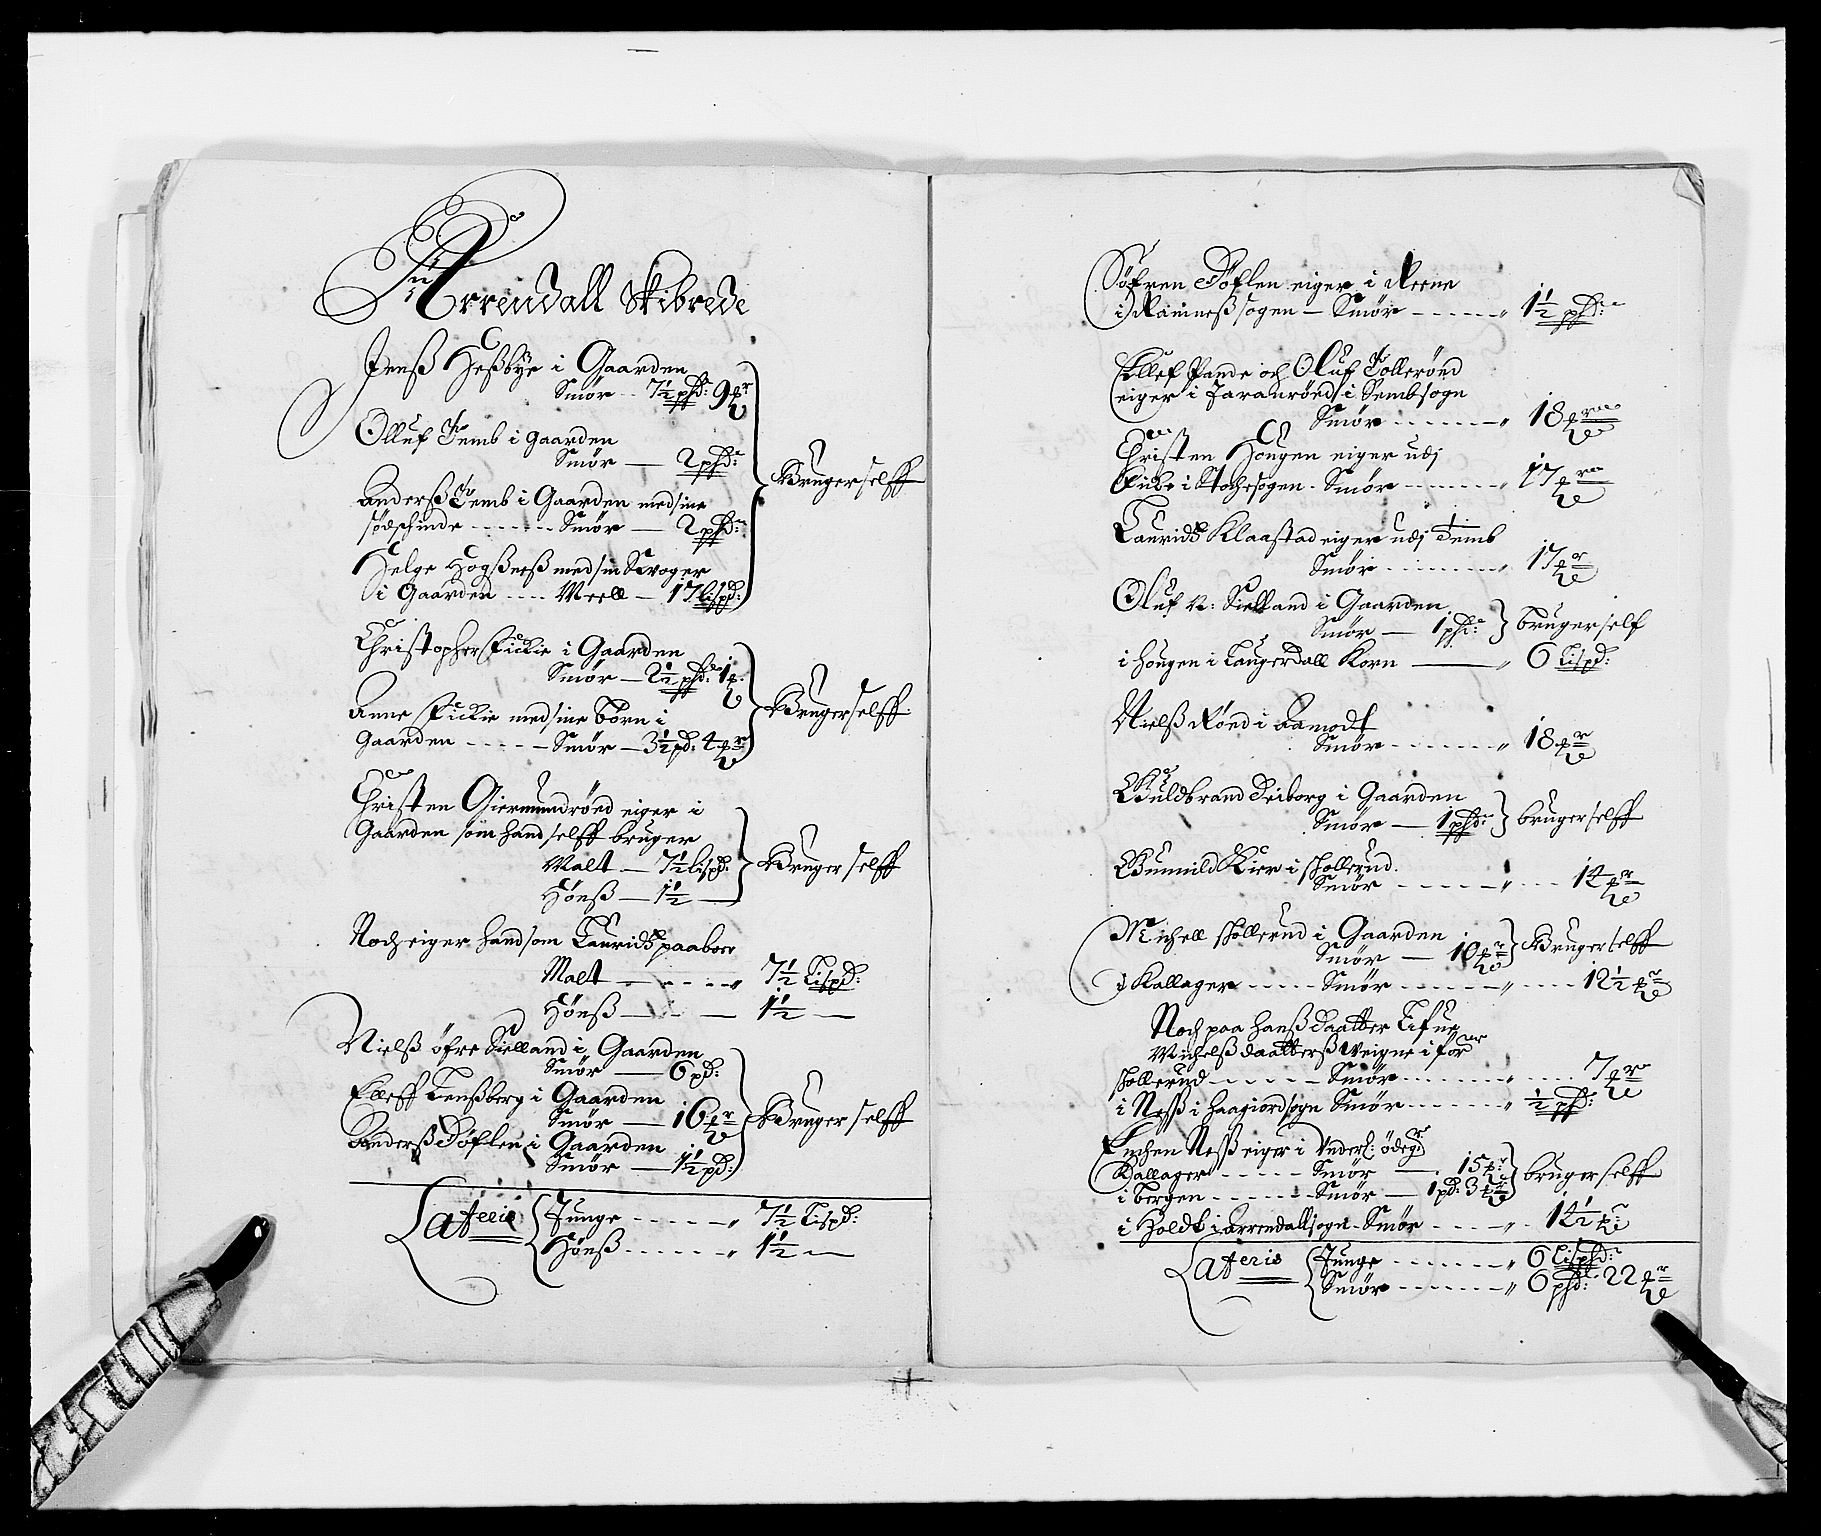 Udj Arrendall Skibrede
Jenß Heßbye i Gaarden
Smør - 7½ pfd: 9 r
Olluf Temb i gaarden
Smør — 2 pfd:
Anderß Temb i Gaarden med sine
södschinde - - - Smør — 2 pfd:
Helge Hogßneß med sin Svoger
i Gaarden - - - Meell — 17 lispd:
Brugerselff
Christopher Fickie i Gaarden
Smør — 2½ pfd: 1
Anne Fickie med sine Börn i
Gaarden - - - - Smør — 3½ pd: 4 r
Brugerselff
Christen Giermundröed eiger i
Gaarden som hand selff bruger
Malt — 7½ lispd:
Hönß — 1½ —
Bruger selff
Noch eiger hand som Lauridß paaboer
Malt - - - - 7½ Lispd:
Hönß — — 1½ —
Nielß öfre Sielland i Gaarden
Smør — 6 pd:
Elleff Tenßberg i Gaarden
Smør — 16 r
Anderß Döflen i Gaarden
Smør — 1½ pd:
Bruger selff
Lateris
Tunge - - - - 7½ Lispd:
Hönß - - - - 1½ —
Söfren Döflen eiger i Reene
i Ramneß sogen — Smør - - - - 1½ pfd:
Ellef Rande och Oluf Tollerönd
eiger i Jaranrönd i Sembsogn
Smør - - - - 18
Christen Hougen eiger udj
i Stochesogen - Smør - - - - 17
Lauridß Klaastad eiger udj Temb
Smør - - - - 17 r
Oluf N: Sielland i Gaarden
Smør — 1 pfd:
brugerself
i Hougen i Laugerdall Korn — 6 Lispd:
Nielß Röed i Ramodt
Smør - - - - 18 r
Guldbrand Deiborg i Gaarden
Smør — 1 pfd:
brugerselff
Gunnild Kier i schollerud
Smør - - - - 14 r
Michell schollerud i Gaarden
Smør — 10 r
Brugerselff
i Kallager - - - Smør - - - - 12½
Noch paa hanß daatter
Michelß daatterß Weigne i for
schollerud - - - - Smør - - - - 7 r
i Neß i haafiordsogn Smør - - - ½ pfd:
Enchen Neß eiger i Underl: ödeg:
Kallager - - - Smør — 15
i Bergen - - - - Smør — 1 pd: 3
brugerselff
i Holdt i arrendallsogn - Smør - - - 14½
Lateris
Tunge - - - - 6 Lispfd:
Smør - - - - 6 pfd: 22 r